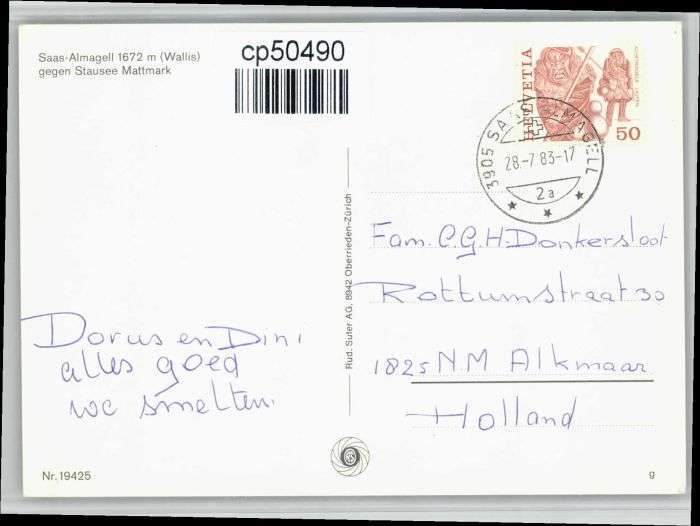 Saas-Almagell 1672 m (Wallis)
gegen Stausee Mattmark
cp50490
HELVETIA
50
3905 SAAS-ALMAGELL
28.-7.83-17
2a
Rud. Suter AG, 8942 Oberrieden-Zürich
Fam. C.G.H. Donkersloot
Rottumstraat 30
1825 N.M Alkmaar
Holland
Dorus en Dini
alles goed
we smelten.
Nr. 19425
g